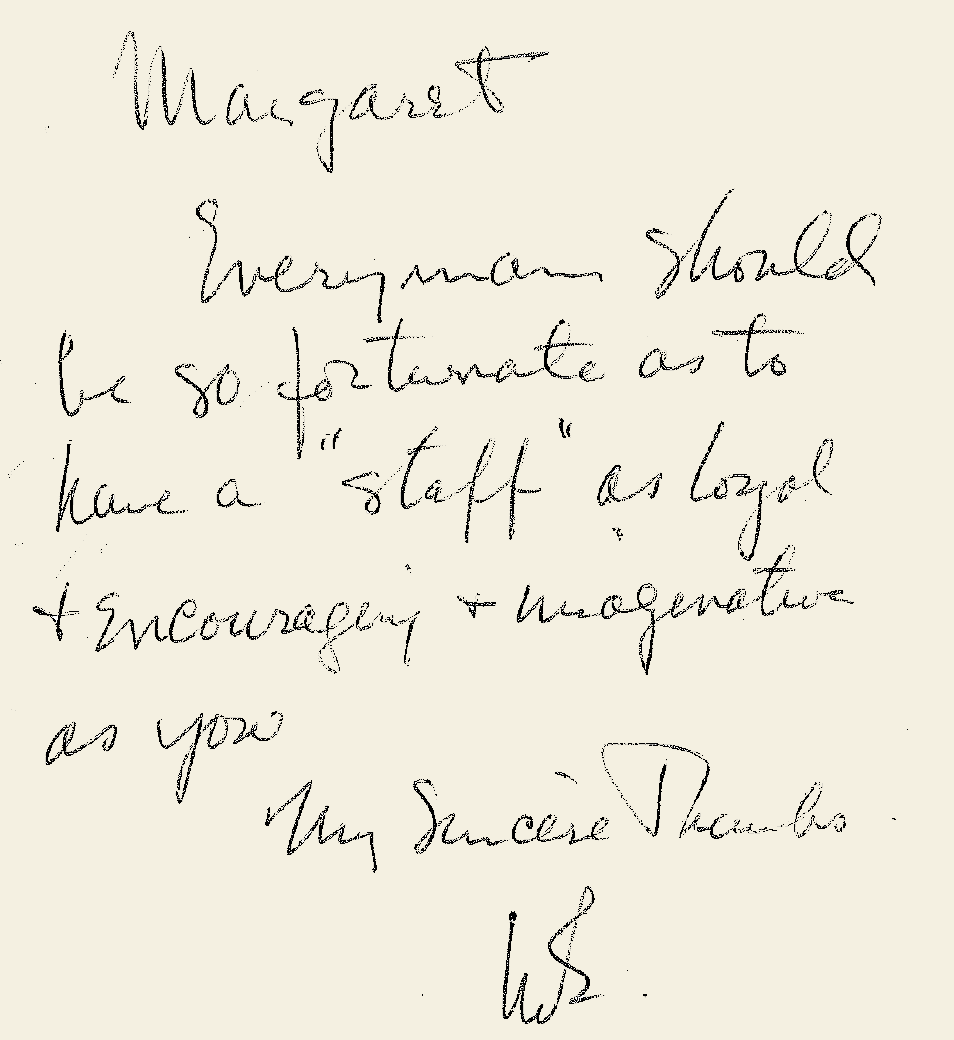 Margaret
Everyman should
be so fortunate as to
have a "staff" as loyal
+ Encouraging + imaginative
as you
My Sincere Thanks